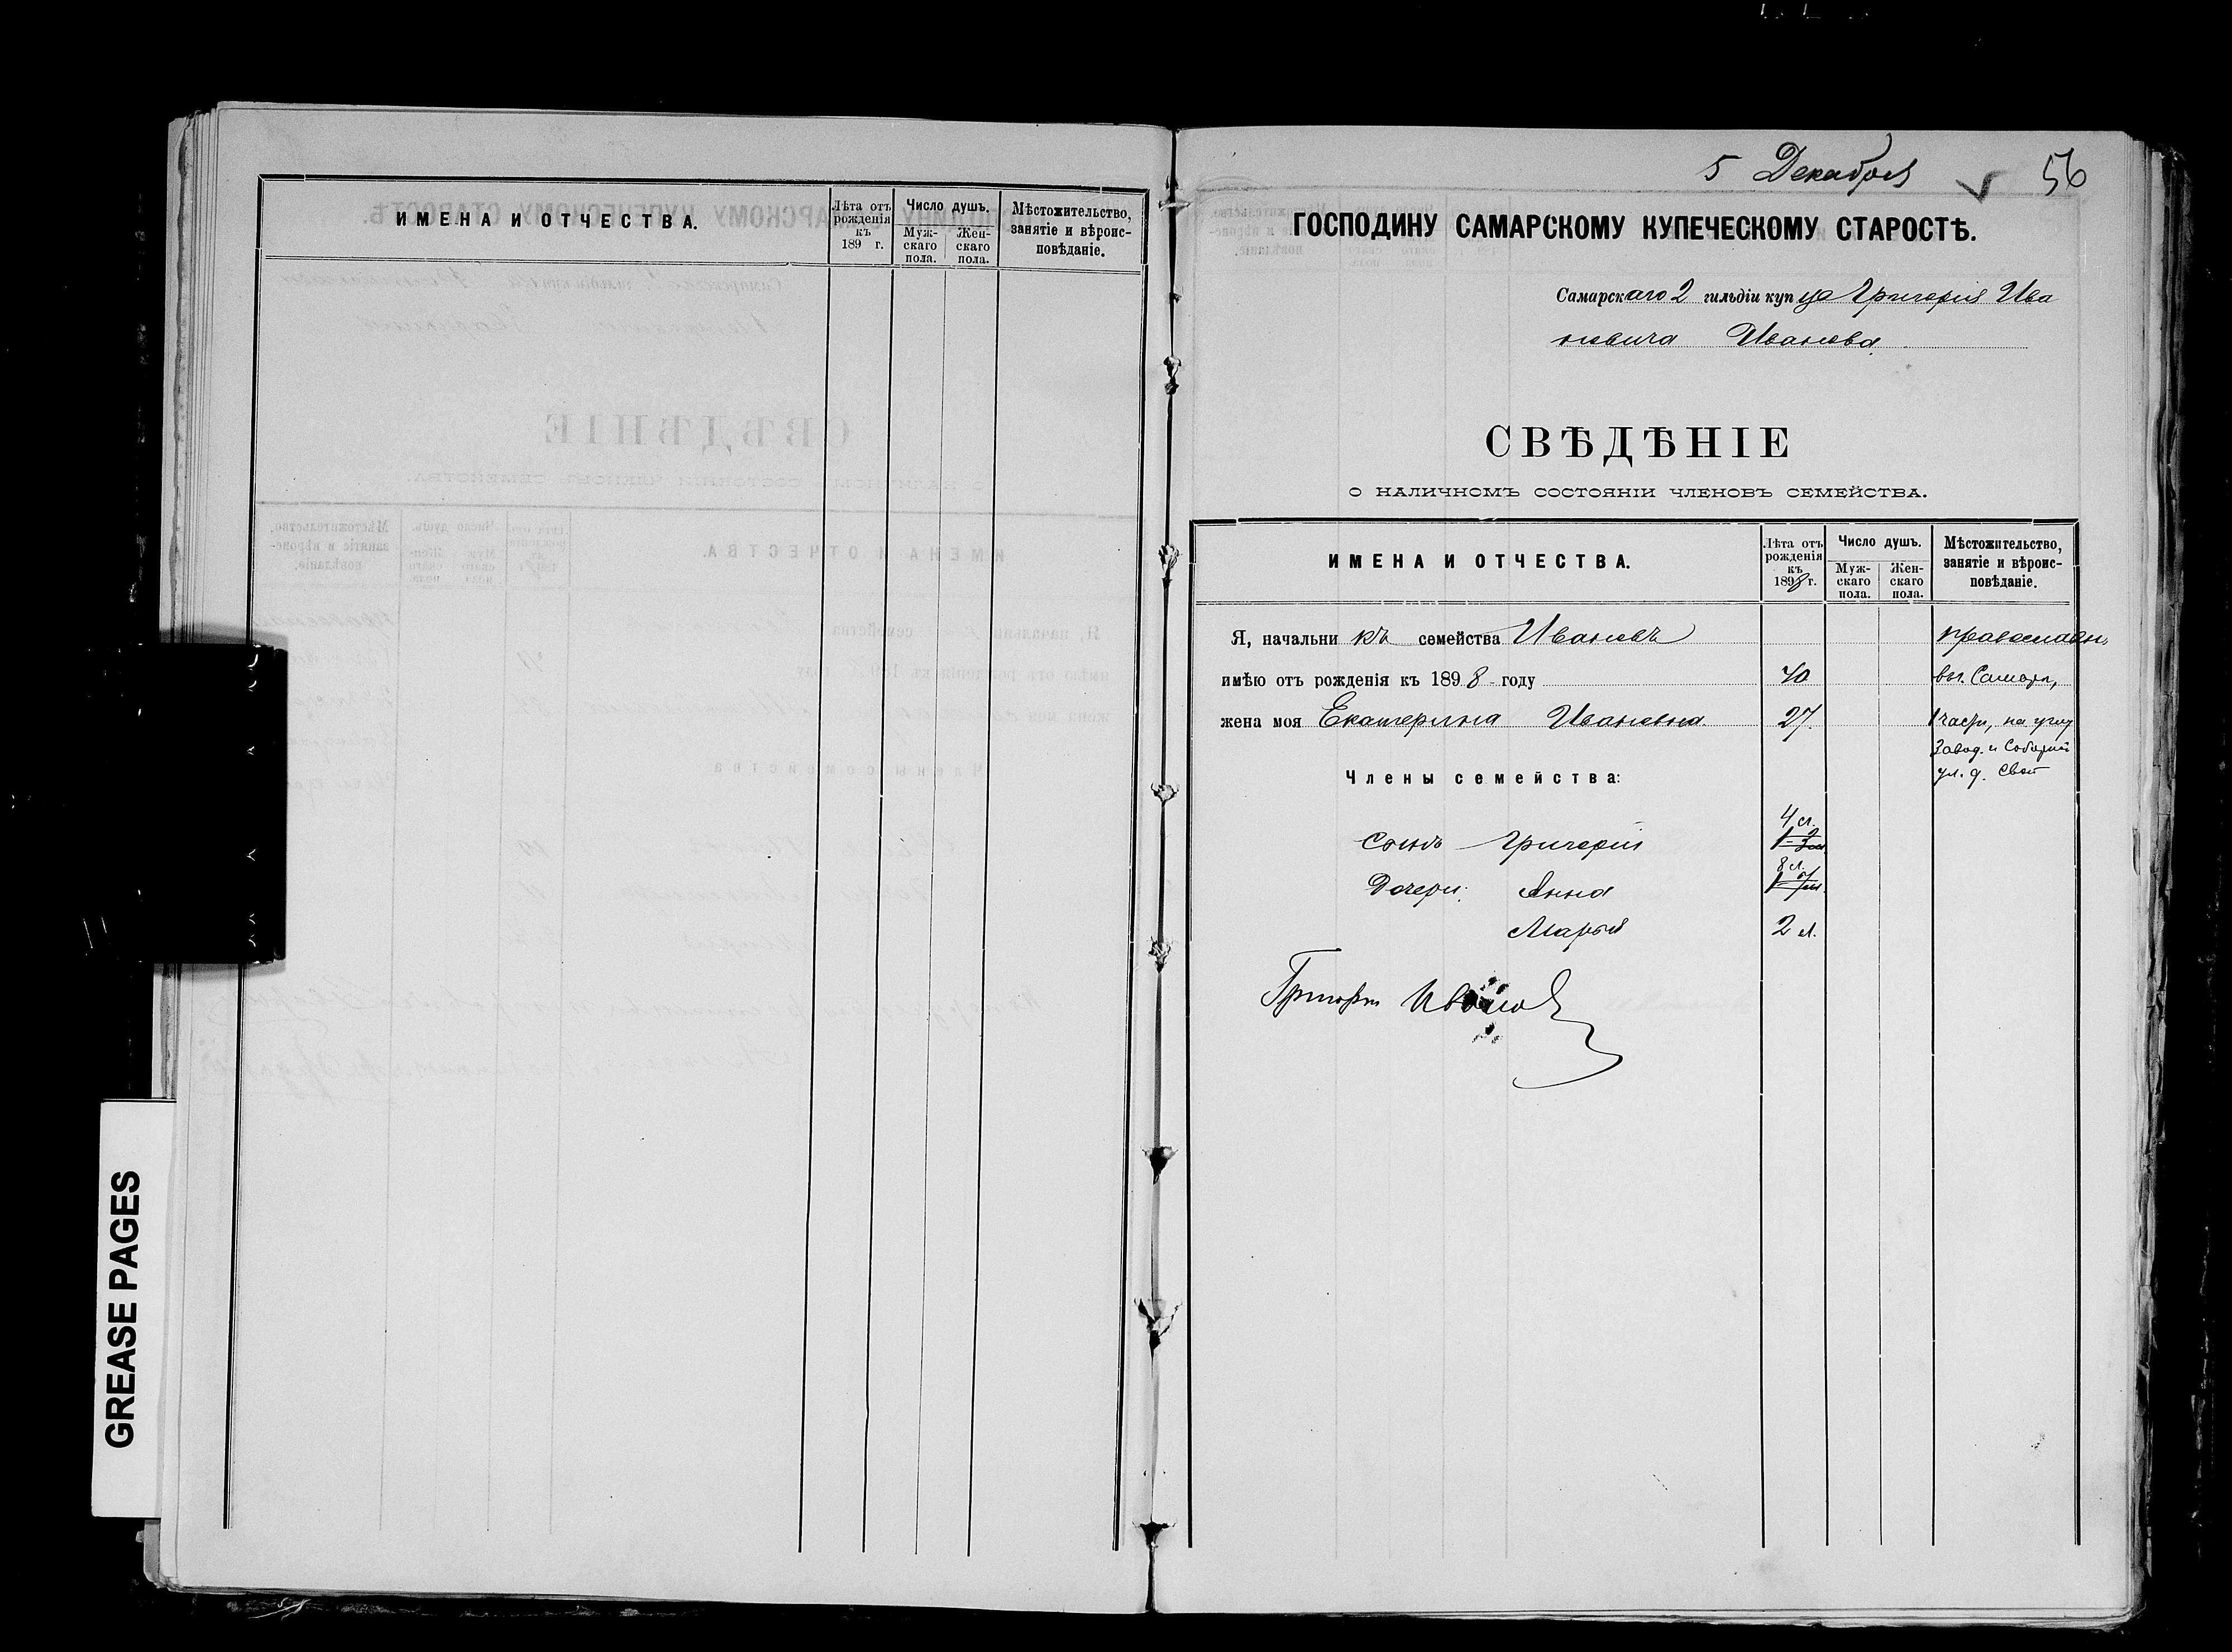 ИМЕНА И ОТЧЕСТВА.
Лѣта отъ рожденія къ 189 г.
Число душъ.
Муж- скаго пола.
Жен- скаго пола.
Мѣстожительство, занятіе и вѣроис- повѣданіе.
GREASE PAGES
5 Декабря
56
ГОСПОДИНУ САМАРСКОМУ КУПЕЧЕСКОМУ СТАРОСТѢ.
Самарскаго 2 гильдіи купца Григорія Ива
новича Иванова
СВѢДѢНІЕ
О НАЛИЧНОМЪ СОСТОЯНІИ ЧЛЕНОВЪ СЕМЕЙСТВА.
ИМЕНА И ОТЧЕСТВА.
Лѣта отъ рожденія къ 1898 г.
Число душъ.
Муж- скаго пола.
Жен- скаго пола.
Мѣстожительство, занятіе и вѣроис- повѣданіе.
Я, начальникъ семейства Ивановъ православн.
имѣю отъ рожденія къ 1898 году 40 въ г. Самарѣ,
жена моя Екатерина Ивановна 27. 1 части, на углу
Завод. и Соборной
ул. д. свой
Члены семейства:
4 л.
Сынъ Григорій
8 л.
Дочери: Анна
Марья 2 л.
Григорій Ивановъ